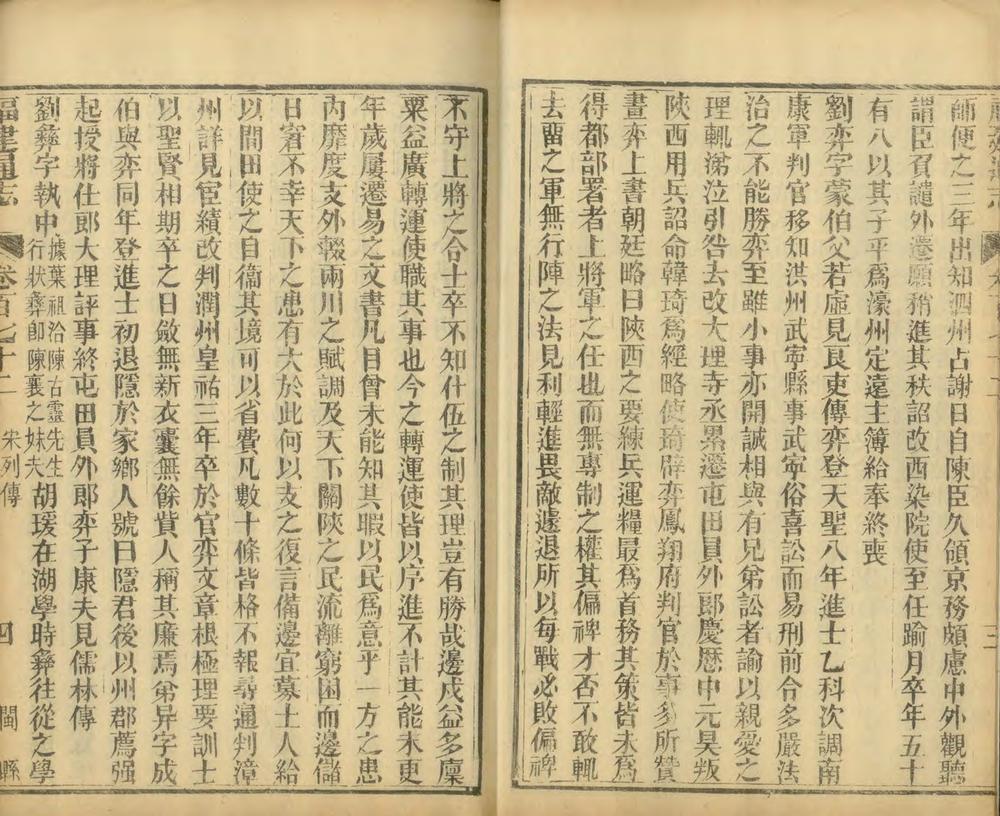 師便之三年出知泗州占謝日自陳臣久領京務頗慮中外觀聽
謂臣負譴外遷願稍進其秩詔改西染院使至任踰月卒年五十
有八以其子平爲濠州定遠主簿給奉終喪
劉弈字蒙伯父若虛見良吏傳弈登天聖八年進士乙科次調南
康軍判官移知洪州武寧縣事武寧俗喜訟而易刑前令多嚴法
治之不能勝弈至雖小事亦開誠相與有兄弟訟者諭以親愛之
理輒涕泣引咎去改大理寺丞累遷屯田員外郎慶歷中元昊叛
陝西用兵詔命韓琦爲經略使琦辟弈鳳翔府判官於事多所贊
畫弈上書朝廷略曰陝西之要練兵運糧最爲首務其策皆未爲
得都部署者上將軍之任也而無專制之權其偏裨才否不敢輒
去留之軍無行陣之法見利輕進畏敵遽退所以每戰必敗偏裨
不守上將之合士卒不知什伍之制其理豈有勝哉邊戍益多廩
粟益廣轉運使職其事也今之轉運使皆以序進不計其能未更
年歲屢遷易之文書凡目曾未能知其暇以民爲意乎一方之患
內靡度支外輟兩川之賦調及天下關陝之民流離窮困而邊儲
日窘不幸天下之患有大於此何以支之復言備邊宜募土人給
以閒田使之自衞其境可以省費凡數十條皆格不報尋通判漳
州詳見宦績改判潤州皇祐三年卒於官弈文章根極理要訓士
以聖賢相期卒之日斂無新衣囊無餘貲人稱其廉焉弟异字成
伯與弈同年登進士初退隱於家鄉人號曰隱君後以州郡薦强
起授將仕郎大理評事終屯田員外郎弈子康夫見儒林傳
劉彝字執中據葉祖洽陳古靈先生行狀彝卽陳襄之妹夫胡瑗在湖學時彝往從之學
福建通志 卷百七十二 宋列傳 四 閩縣